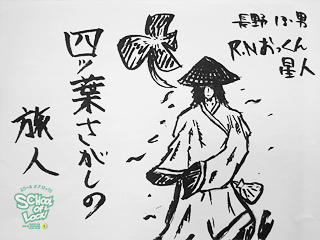 長野 15 男
R.N おっくん
星人
四ッ葉さがしの
旅人
SCHOOL
OF
LOCK!